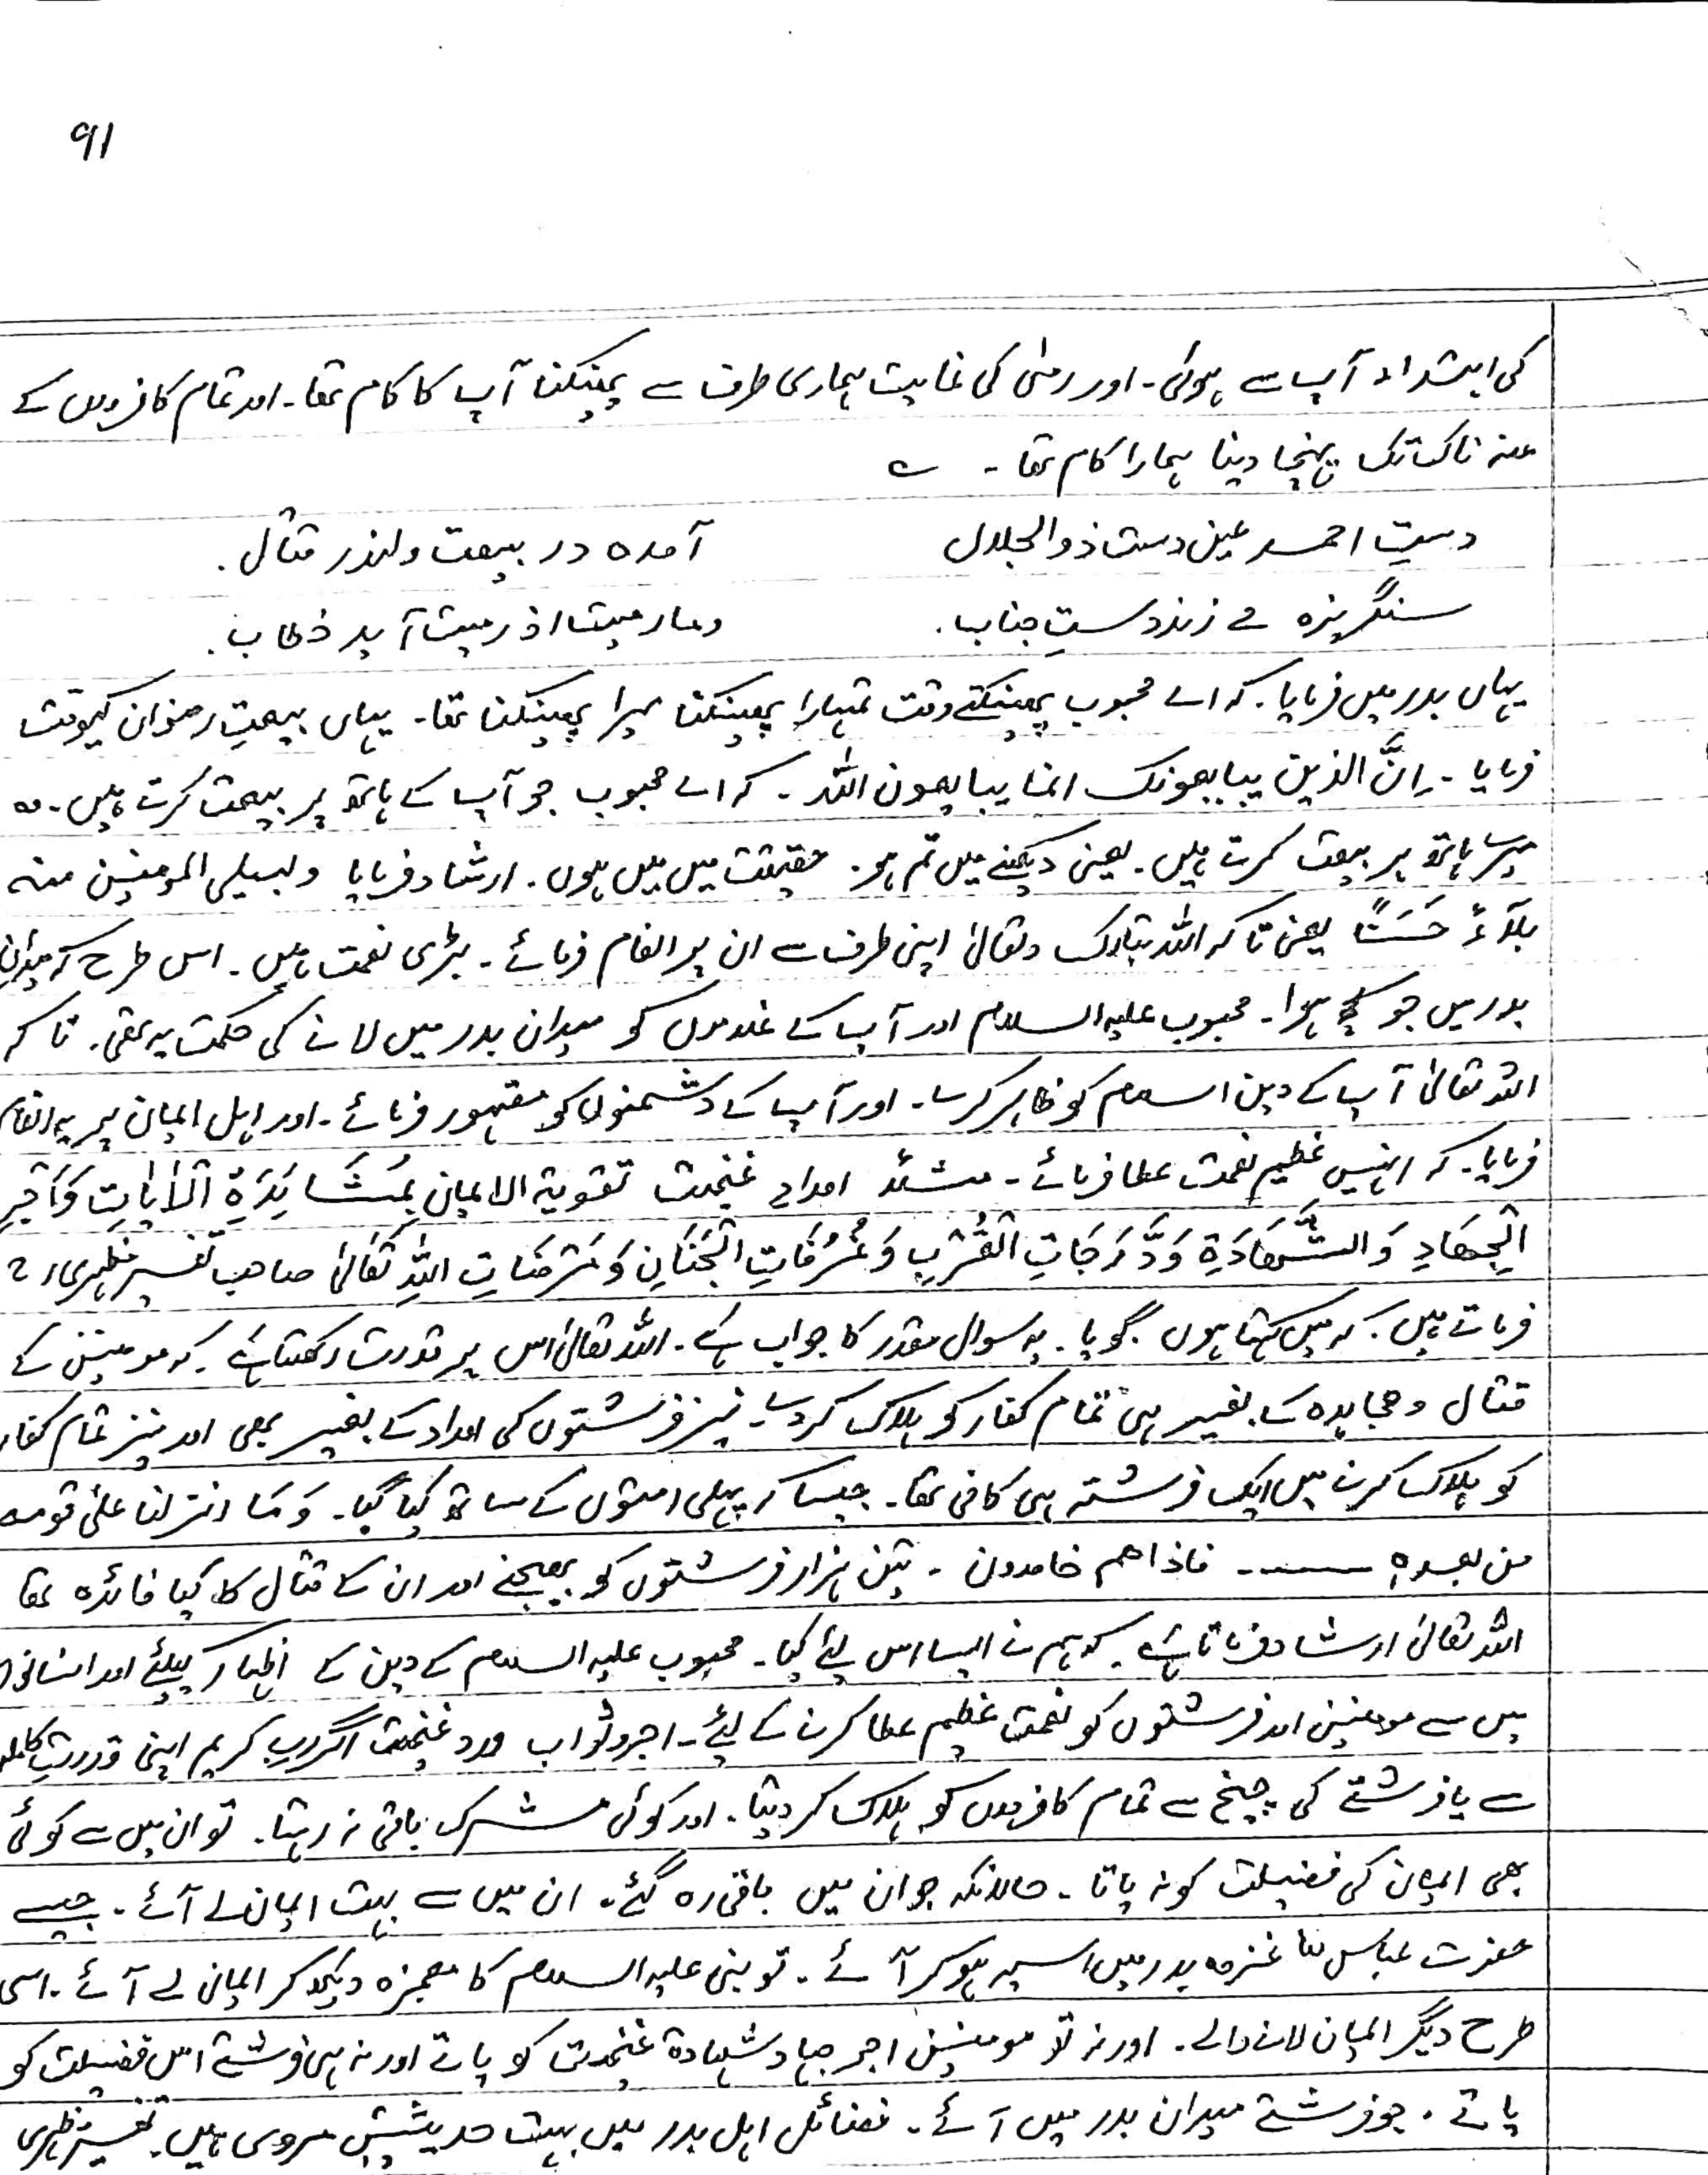 91
کی ابتداء آپ سے ہوئی۔ اور رمیٰ کی غایت ہماری طرف سے پھینکنا آپ کا کام تھا۔ اور تمام کافروں کے
منہ ناک تک پہنچا دینا ہمارا کام تھا۔ ے
دستِ احمد عین دست ذوالجلال آمدہ در بیعت و اندر قتال.
سنگریزہ مے زند دستِ جناب. ومارمیت اذ رمیت آید خطاب.
یہاں بدر میں فرمایا۔ کہ اے محبوب پھینکتے وقت تمہارا پھینکنا میرا پھینکنا تھا۔ یہاں بیعتِ رضوان کیوقت
فرمایا۔ اِنَّ الذین یبایعونک انما یبایعون اللہ۔ کہ اے محبوب جو آپ کے ہاتھ پر بیعت کرتے ہیں۔ وہ
میرے ہاتھ پر بیعت کرتے ہیں۔ یعنی دیکھنے میں تم ہو۔ حقیقت میں میں ہوں۔ ارشاد فرمایا ولیبلی المومنین منہ
بلآءً حَسَنًا یعنی تاکہ اللہ تبارک وتعالیٰ اپنی طرف سے ان پر انعام فرمائے۔ بڑی نعمت ہیں۔ اس طرح کہ میدانِ
بدر میں جو کچھ ہوا۔ محبوب علیہ السلام اور آپ کے غلاموں کو میدان بدر میں لانے کی حکمت یہ تھی۔ تاکہ
اللہ تعالیٰ آپ کے دین اسلام کو ظاہر کرے۔ اور آپ کے دشمنوں کو مقہور فرمائے۔ اور اہل ایمان پر یہ انعام
فرمایا۔ کہ انہیں عظیم نعمت عطا فرمائے۔ مثلاً امداد غنیمت تقویۃ الایمان بِمُشَاہَدَۃِ الْاٰیَاتِ وَاَجْرِ
الْجِھَادِ وَالشَّھَادَۃِ وَدَّرَجَاتِ الْقُرْبِ وَغُرُفَاتِ الْجَنَانِ وَمَرْضَاتِ اللہِ تَعَالیٰ صاحب تفسیر مظہری
فرماتے ہیں۔ کہ میں کہتا ہوں۔ گویا۔ یہ سوال مقدر کا جواب ہے۔ اللہ تعالیٰ اس پر قدرت رکھتا ہے۔ کہ مومنین کے
قتال ومجاہدہ کے بغیر ہی تمام کفار کو ہلاک کر دے۔ نیز فرشتوں کی امداد کے بغیر بھی اور نیز تمام کفار
کو ہلاک کرنے میں ایک فرشتہ ہی کافی تھا۔ جیسا کہ پہلی امتوں کے ساتھ کیا گیا۔ وَمَا انزلنا علیٰ قومہ
من بعدہٖ ——-- فاذاھم خامدون۔ تین ہزار فرشتوں کو بھیجنے اور ان کے قتال کا کیا فائدہ تھا
اللہ تعالیٰ ارشاد فرماتا ہے۔ کہ ہم نے ایسا اس لیے کیا۔ محبوب علیہ السلام کے دین کے اظہار کیلئے اور انسانوں
میں سے مومنین اور فرشتوں کو نعمت عظیم عطا کرنے کے لیے۔ اجر وثواب مدد غنیمت اگر رب کریم اپنی قدرتِ کاملہ
سے یا فرشتے کی چیخ سے تمام کافروں کو ہلاک کر دیتا۔ اور کوئی مشرک باقی نہ رہتا۔ تو ان میں سے کوئی
بھی ایمان کی فضیلت کو نہ پاتا۔ حالانکہ جو ان میں باقی رہ گئے۔ ان میں سے بہت ایمان لے آئے۔ جیسے
حضرت عباس غزوہ بدر میں اسیر ہو کر آئے۔ تو نبی علیہ السلام کا معجزہ دیکھ کر ایمان لے آئے۔ اسی
طرح دیگر ایمان لانے والے۔ اور نہ تو مومنین اجر جہاد شہادۃ غنیمت کو پاتے اور نہ ہی فرشتے اس فضیلت کو
پاتے۔ جو فرشتے میدان بدر میں آئے۔ فضائل اہل بدر میں بہت حدیثیں مروی ہیں۔ تفسیر مظہری